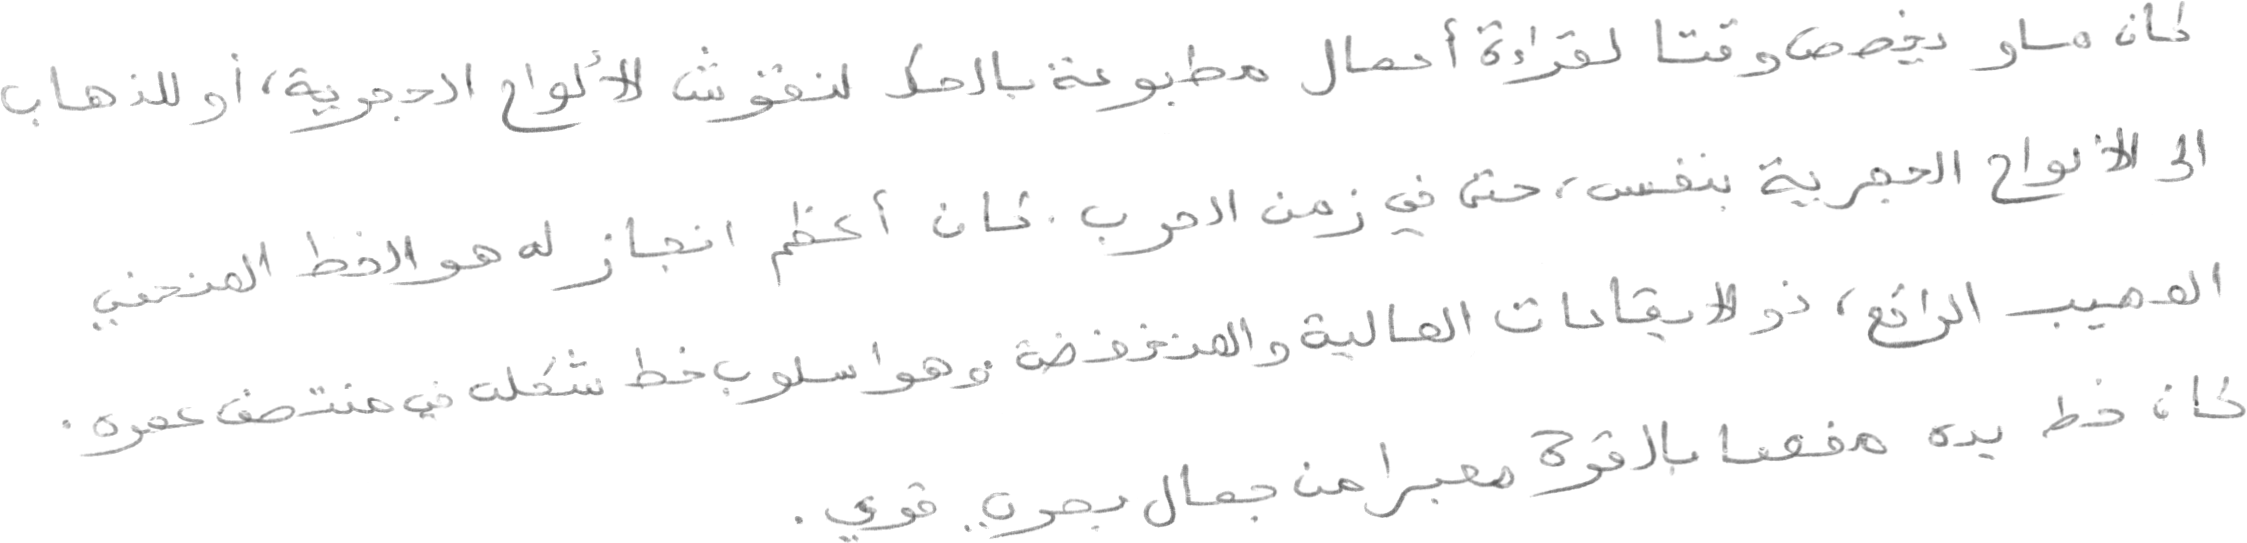 كان ماو يخصص وقتا لقراءة أعمال مطبوعة بالحك لنقوش الألواح الحجرية، أو للذهاب
الى الألواح الحجرية بنفس، حتى في زمن الحرب. كان أعظم انجاز له هو الخط المنحني
المهيب الرائع، ذو الايقاعات العالية والمنخفضة وهو اسلوب خط شكله في منتصف عمره.
كان خط يده مفعما بالقوة معبرا من جمال بصري قوي.